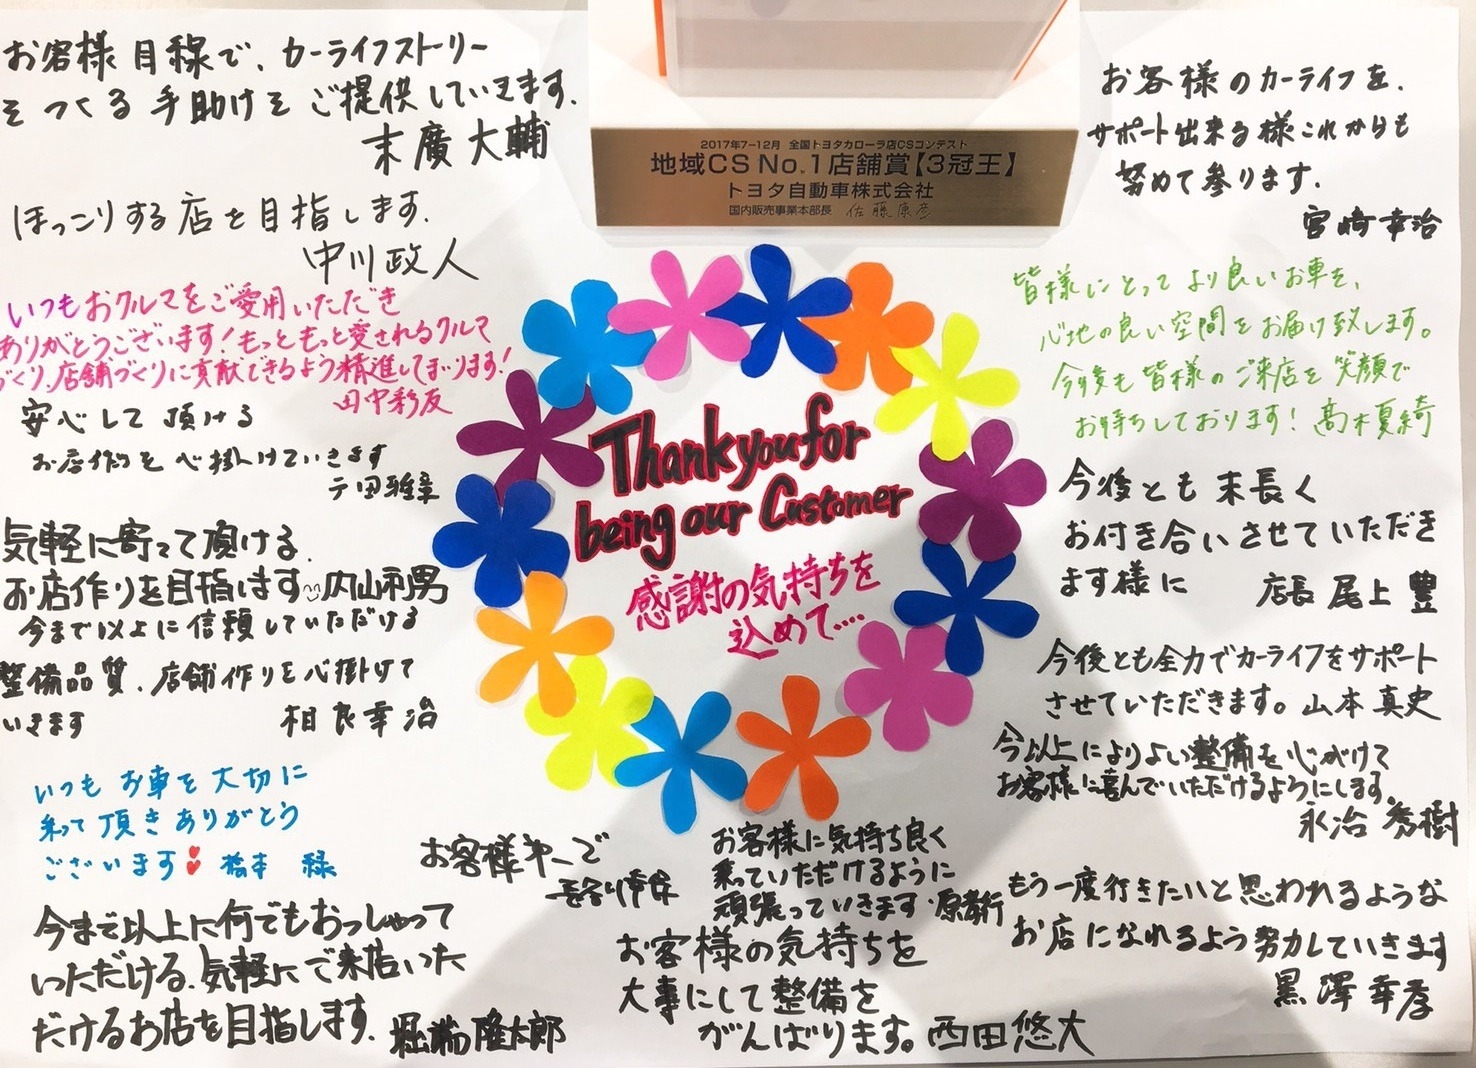 お客様目線で、カーライフストーリー
をつくる手助けをご提供していきます。
末廣大輔
ほっこりする店を目指します。
中川政人
いつもおクルマをご愛用いただき
ありがとうございます!もっともっと愛されるクルマ
づくり、店舗づくりに貢献できるよう精進してまいります!
田中彩友
安心して頂ける
お店作りを心掛けていきます
田雅章
気軽に寄って頂ける
お店作りを目指します 内山利男
今まで以上に信頼していただける
整備品質、店舗作りを心掛けて
いきます 相良幸治
いつもお車を大切に
乗って頂きありがとう
ございます 橋本 緑
今まで以上に何でもおっしゃって
いただける、気軽にご来店いた
だけるお店を目指します。堀端隆太郎
2017年7-12月 全国トヨタカローラ店CSコンテスト
地域CS No.1店舗賞【3冠王】
トヨタ自動車株式会社
国内販売事業本部長 佐藤康彦
Thank you for
being our Customer
感謝の気持ちを
込めて....
お客様第一で
長谷川幸
お客様に気持ち良く
乗っていただけるように
頑張っていきます・原孝行
お客様の気持ちを
大事にして整備を
がんばります。西田悠大
お客様のカーライフを、
サポート出来る様これからも
努めて参ります。
宮崎幸治
皆様にとってより良いお車を、
心地の良い空間をお届け致します。
今後も皆様のご来店を笑顔で
お待ちしております! 髙木夏綺
今後とも末長く
お付き合いさせていただき
ます様に 店長 尾上 豊
今後とも全力でカーライフをサポート
させていただきます。山本真史
今以上によりよい整備を心がけて
お客様に喜んでいただけるようにします。
永治 秀樹
もう一度行きたいと思われるような
お店になれるよう努力していきます
黒澤幸孝